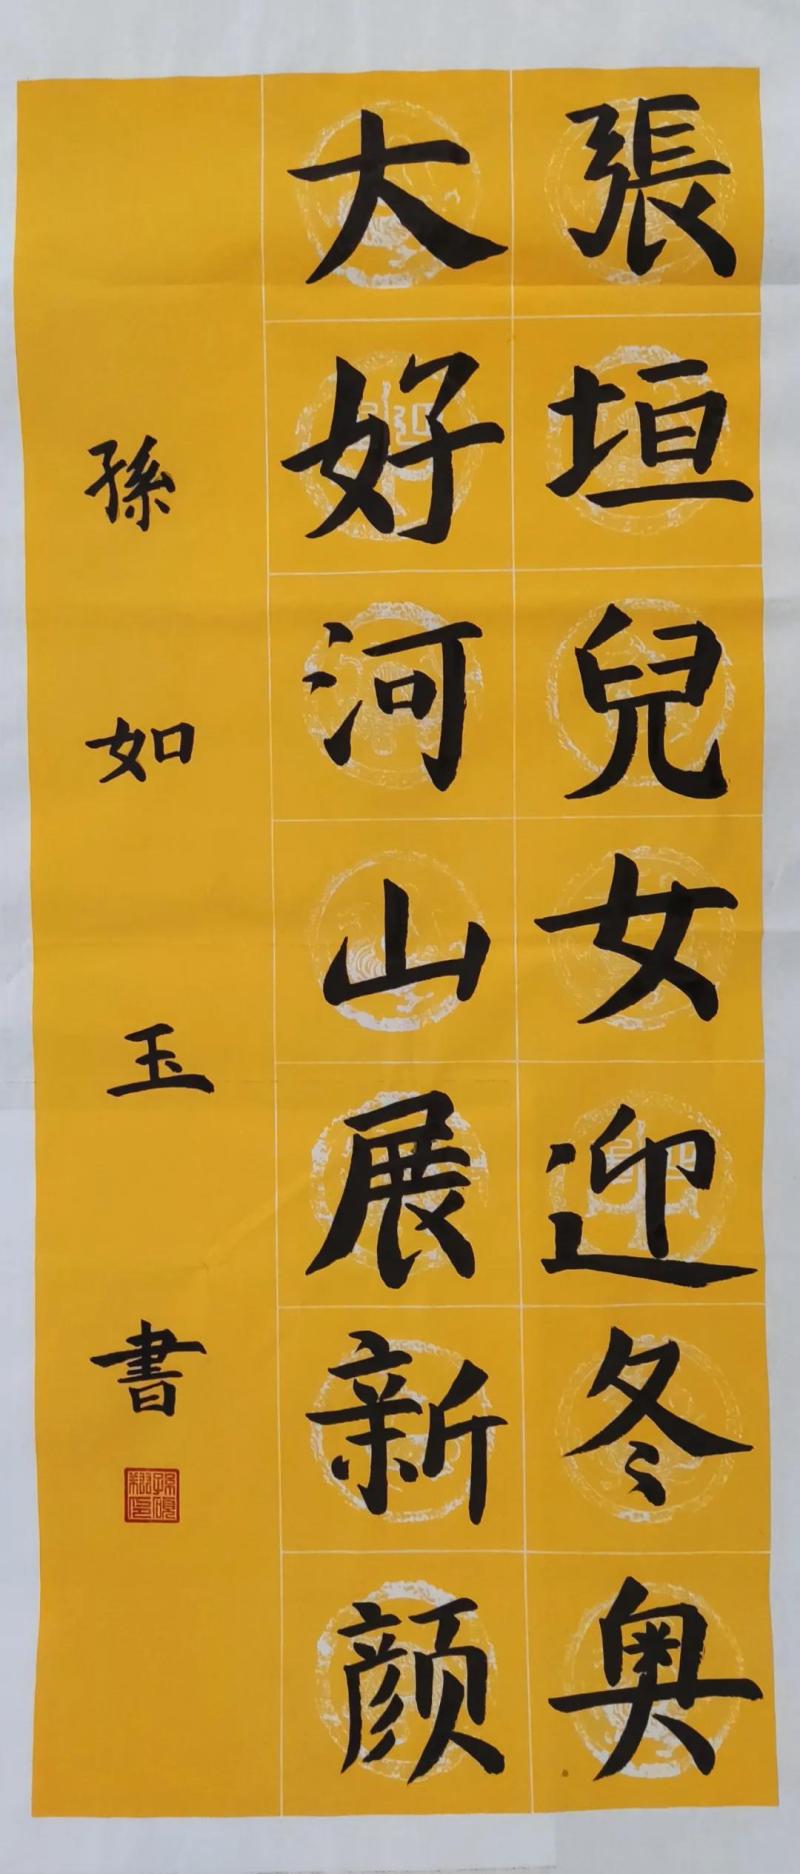 張垣兒女迎冬奥
大好河山展新颜
孫如玉書